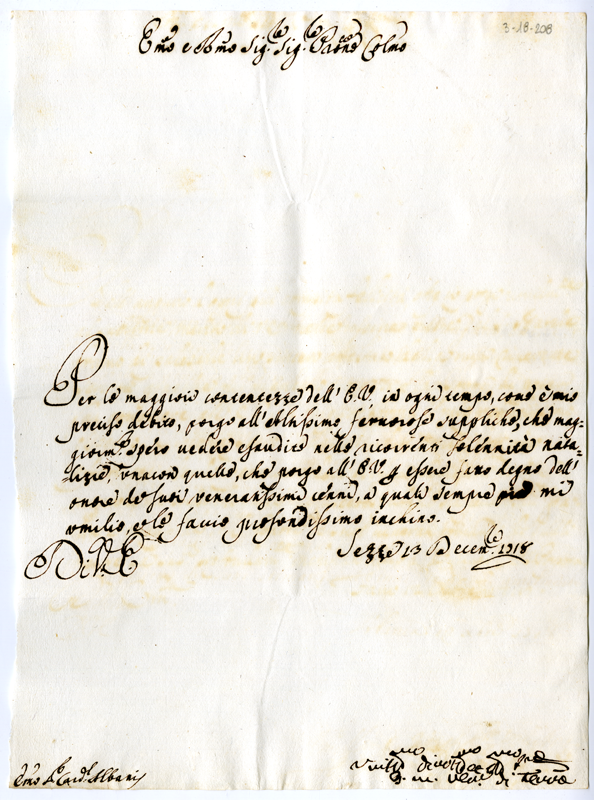 3-18-208
Emo e Rmo Sig.r Sig.r Prone Colmo
Per le maggiori contentezze dell' E.V. in ogni tempo, come è mio
preciso debito, porgo all' Altissimo fervorose suppliche, che mag-
giorm.te spero vedere esaudite nelle ricorrenti solennità nata-
lizie, unacon quelle, che porgo all' E.V. p essere fatto degno dell'
onore de suoi veneratissimi cenni, a quali sempre più mi
umilio, e le faccio profondissimo inchino.
Di V. E.
Sezze 13 Decem.re 1718
Emo Sr. Card. Albani